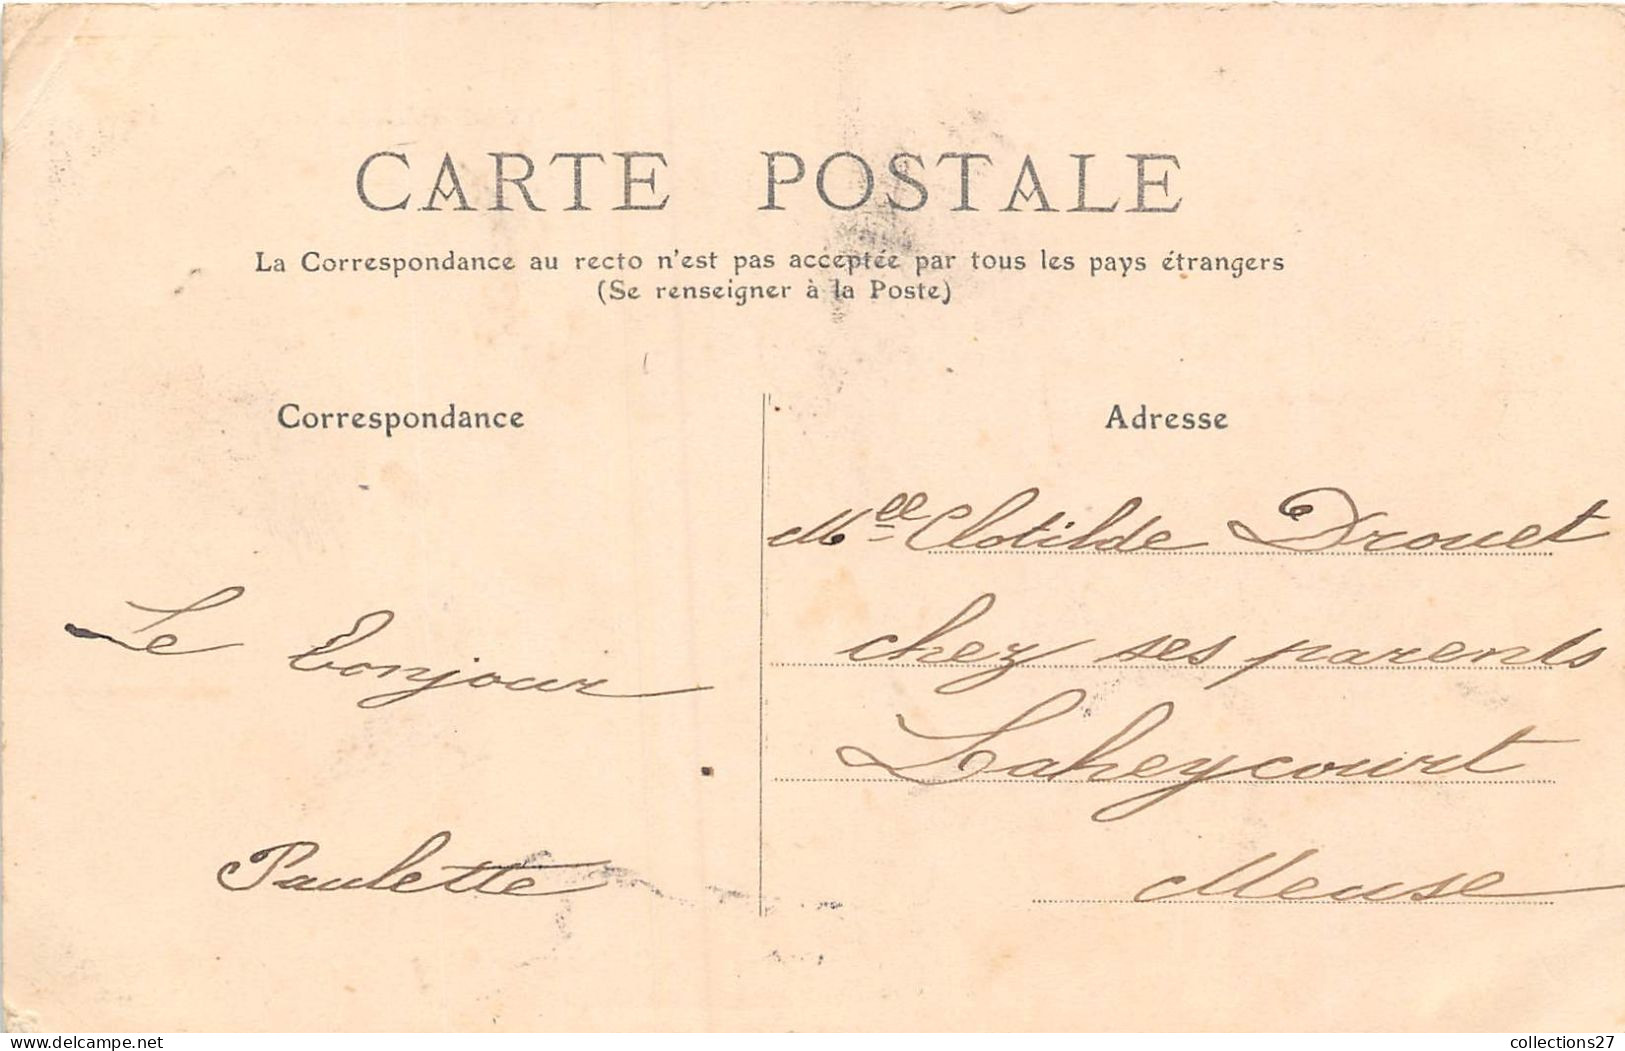 CARTE POSTALE
La Correspondance au recto n'est pas acceptée par tous les pays étrangers
(Se renseigner à la Poste)
Correspondance
Le bonjour
Paulette
Adresse
Melle Clotilde Drouet
chez ses parents
Laheycourt
Meuse
delcampe.net
collections27